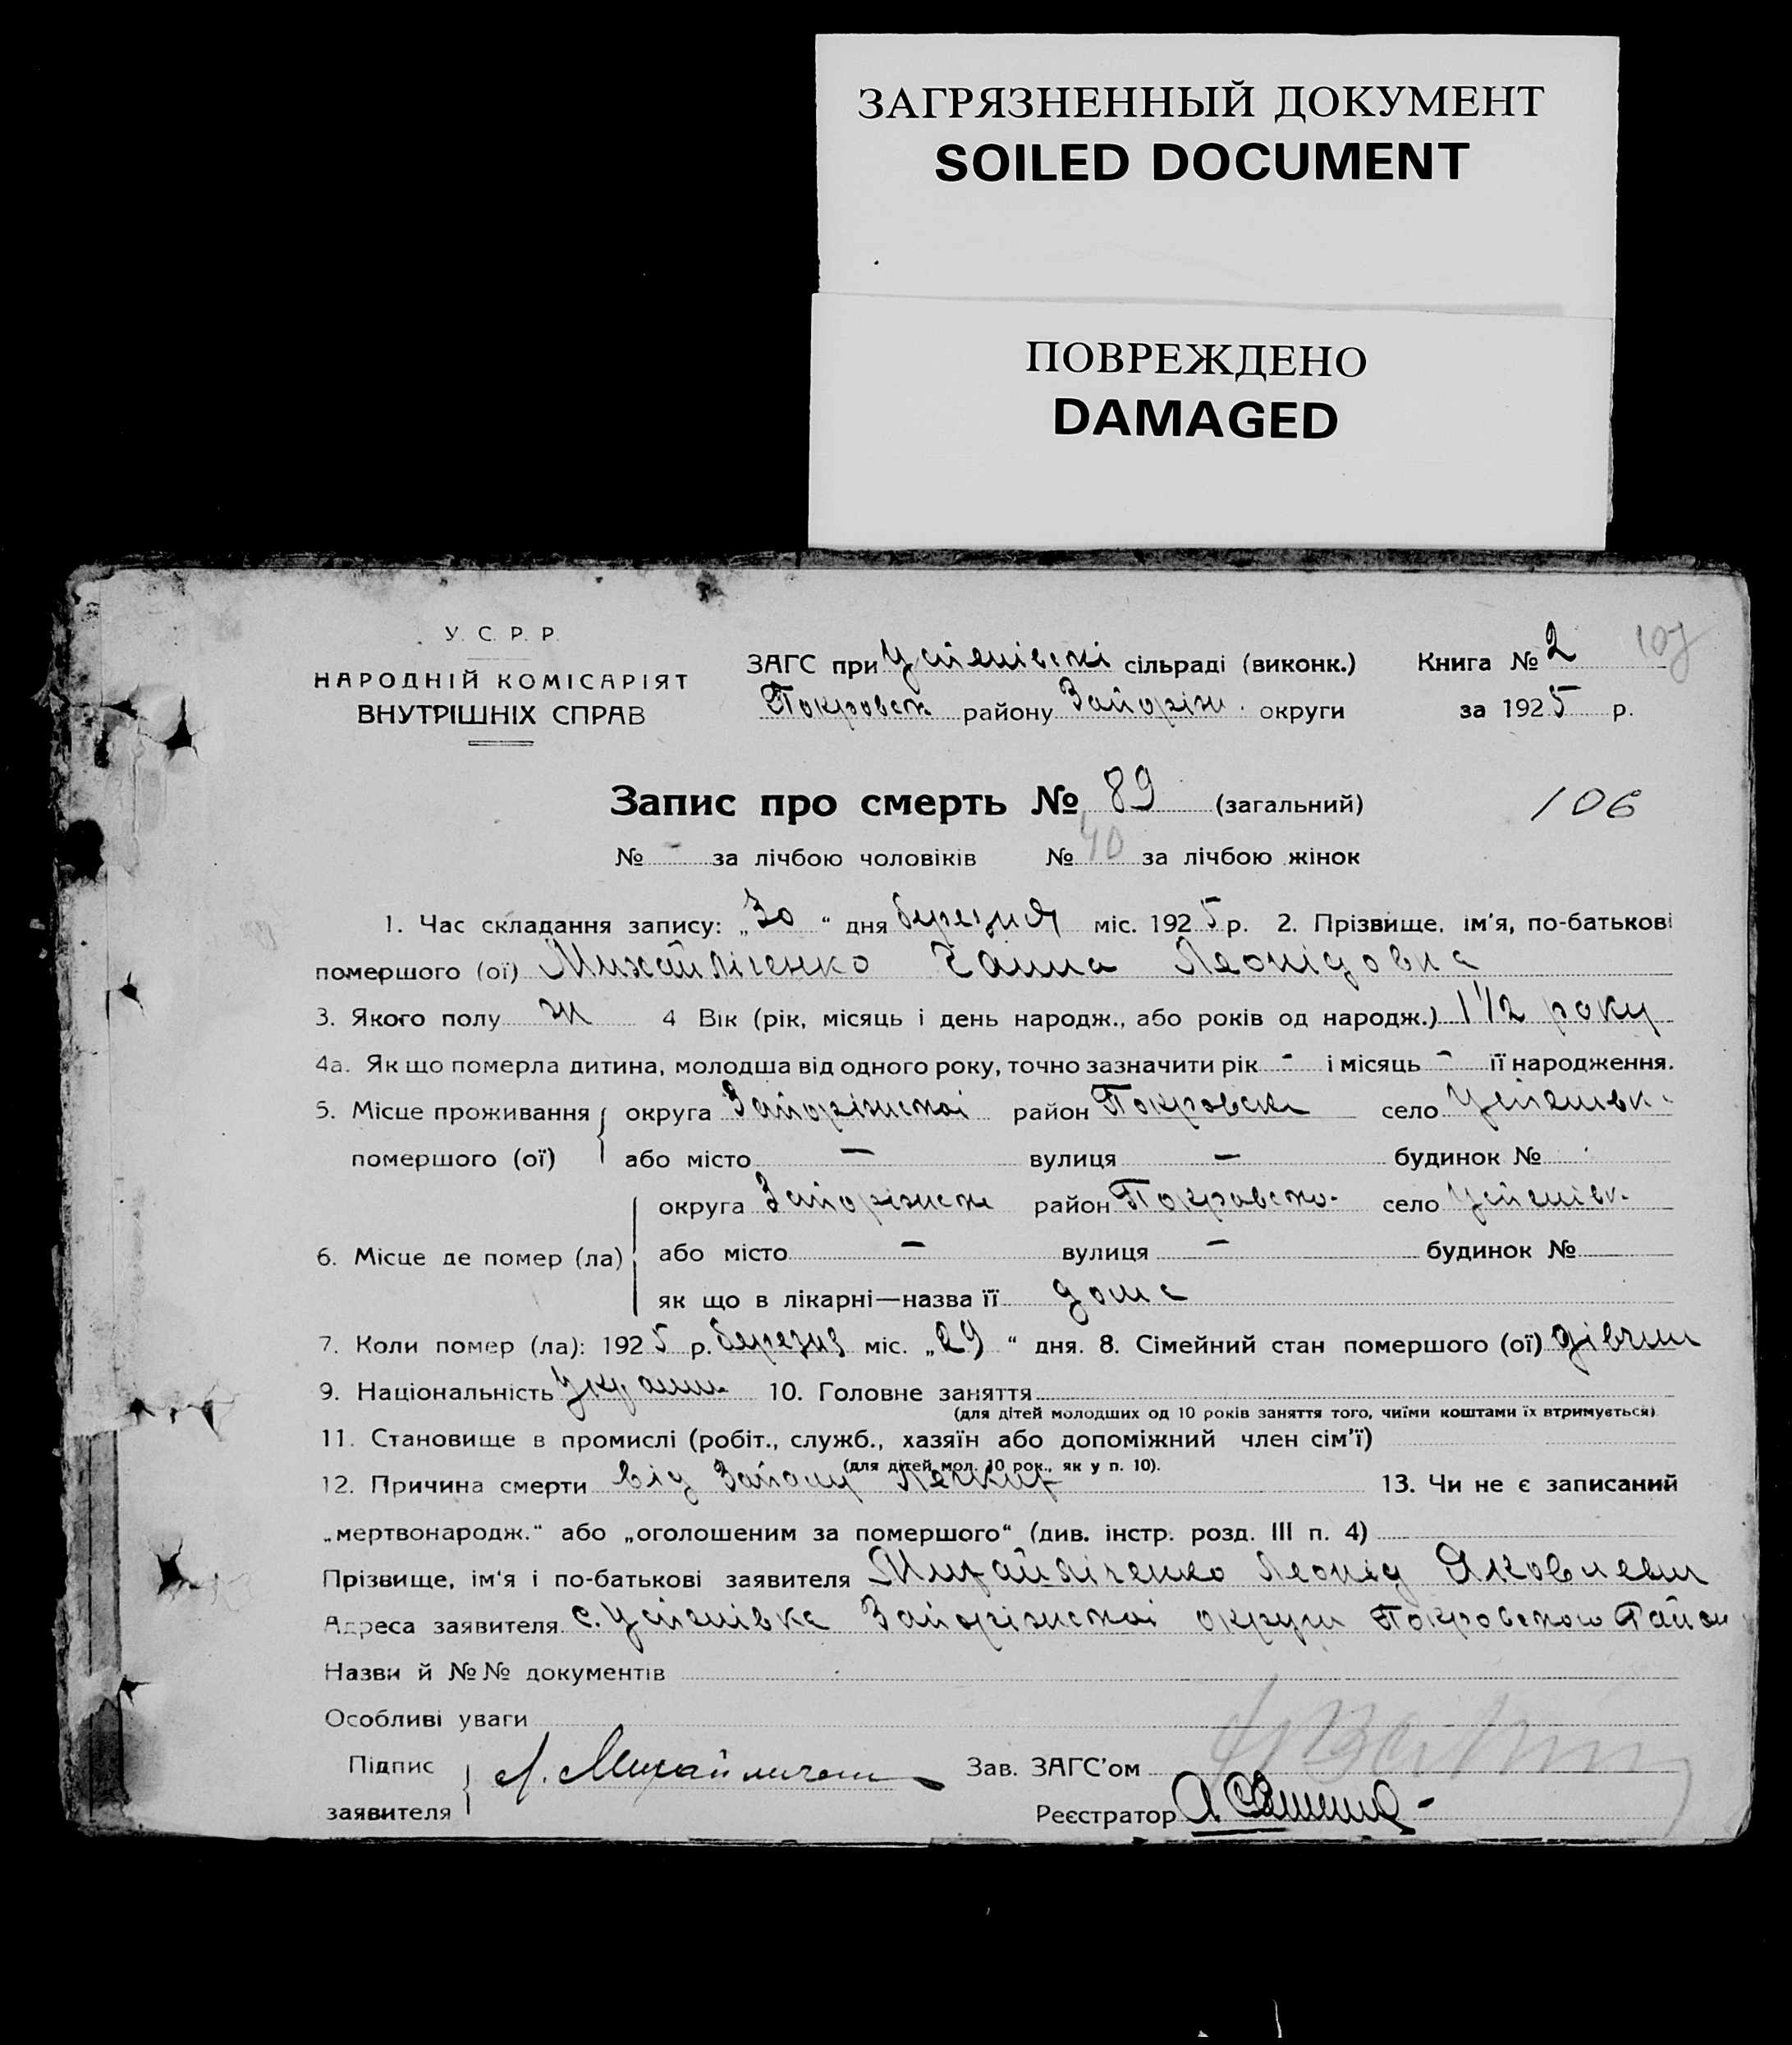 ЗАГРЯЗНЕННЫЙ ДОКУМЕНТ
SOILED DOCUMENT
ПОВРЕЖДЕНО
DAMAGED
У. С. Р. Р.
НАРОДНІЙ КОМІСАРІЯТ
ВНУТРІШНІХ СПРАВ
ЗАГС при Успенівскі сільраді (виконк.) Книга № 2 107
Покровск району Запоріж. округи за 1925 р.
Запис про смерть № 89 (загальний) 106
№ - за лічбою чоловіків № 40 за лічбою жінок
1. Час складання запису: „30“ дня березня міс. 1925 р. 2. Прізвище, ім'я, по-батькові
помершого (ої) Михайліченко Ганна Леонідовна
3. Якого полу ж 4 Вік (рік, місяць і день народж., або років од народж.) 1 1/2 року
4а. Як що померла дитина, молодша від одного року, точно зазначити рік - і місяць - її народження.
5. Місце проживання округа Запоріжскої район Покровск село Успенівк
помершого (ої) або місто — вулиця — будинок №
округа Запоріжск район Покровско- село Успенівк
6. Місце де помер (ла) або місто — вулиця — будинок №
як що в лікарні—назва її дома
7. Коли помер (ла): 1925 р. березня міс. „29“ дня. 8. Сімейний стан помершого (ої) дівчин
9. Національність Украин 10. Головне заняття
(для дітей молодших од 10 років заняття того, чиїми коштами їх втримується)
11. Становище в промислі (робіт., служб., хазяїн або допоміжний член сім'ї)
(для дітей мол. 10 рок., як у п. 10).
12. Причина смерти від Запалу Легких 13. Чи не є записаний
„мертвонародж.“ або „оголошеним за помершого“ (див. інстр. розд. III п. 4)
Прізвище, ім'я і по-батькові заявителя Михайліченко Леонід Яковлевич
Адреса заявителя с. Успенівка Запоріжскої округи Покровского Район
Назви й №№ документів
Особливі уваги
Підпис
заявителя Л. Михайличен
Зав. ЗАГС'ом
Реєстратор